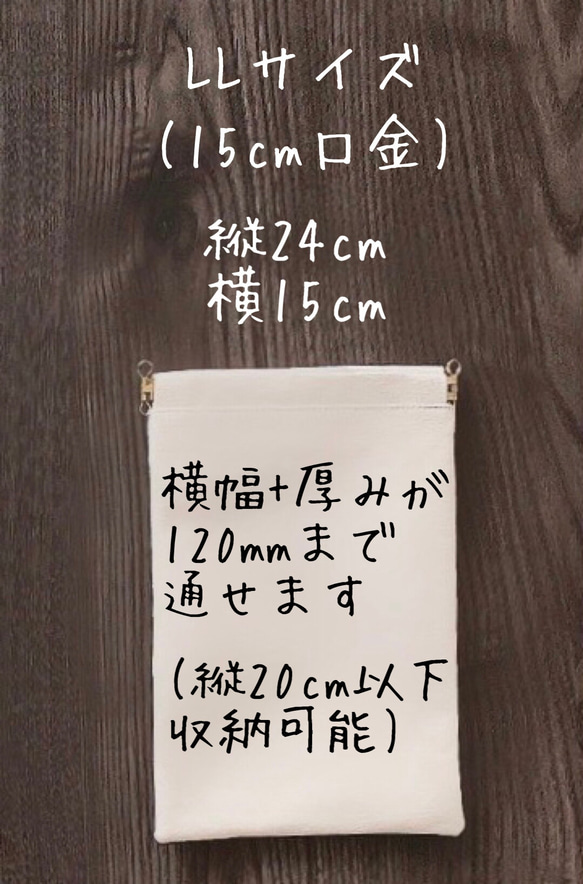 LLサイズ
(15cm口金)
縦24cm
横15cm
横幅+厚みが
120mmまで
通せます
(縦20cm以下
収納可能)